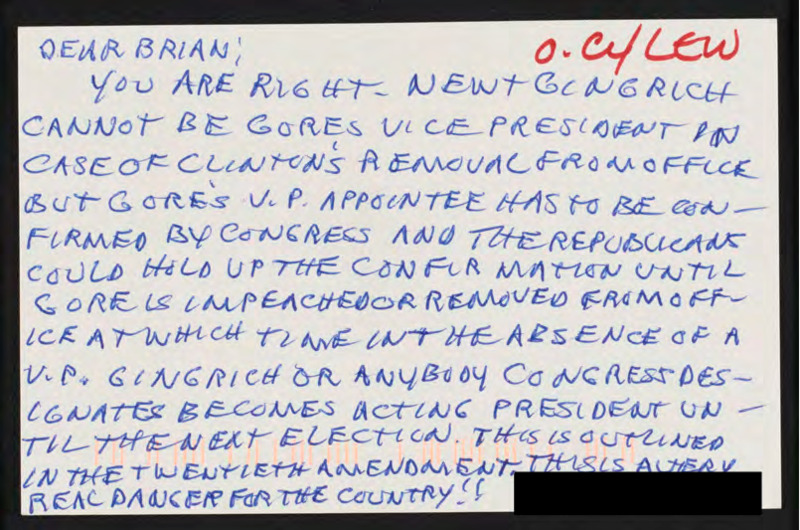 DEAR BRIAN; O. Cy LEW
YOU ARE RIGHT - NEWT GINGRICH
CANNOT BE GORES VICE PRESIDENT IN
CASE OF CLINTON'S REMOVAL FROM OFFICE
BUT GORE'S V.P. APPOINTEE HAS TO BE CON-
FIRMED BY CONGRESS AND THE REPUBLICANS
COULD HOLD UP THE CONFIRMATION UNTIL
GORE IS IMPEACHED OR REMOVED FROM OFF-
ICE AT WHICH TIME IN THE ABSENCE OF A
V.P. GINGRICH OR ANYBODY CONGRESS DES-
IGNATES BECOMES ACTING PRESIDENT UN-
TIL THE NEXT ELECTION. THIS IS OUTLINED
IN THE TWENTIETH AMENDMENT. THIS IS A VERY
REAL DANGER FOR THE COUNTRY!!